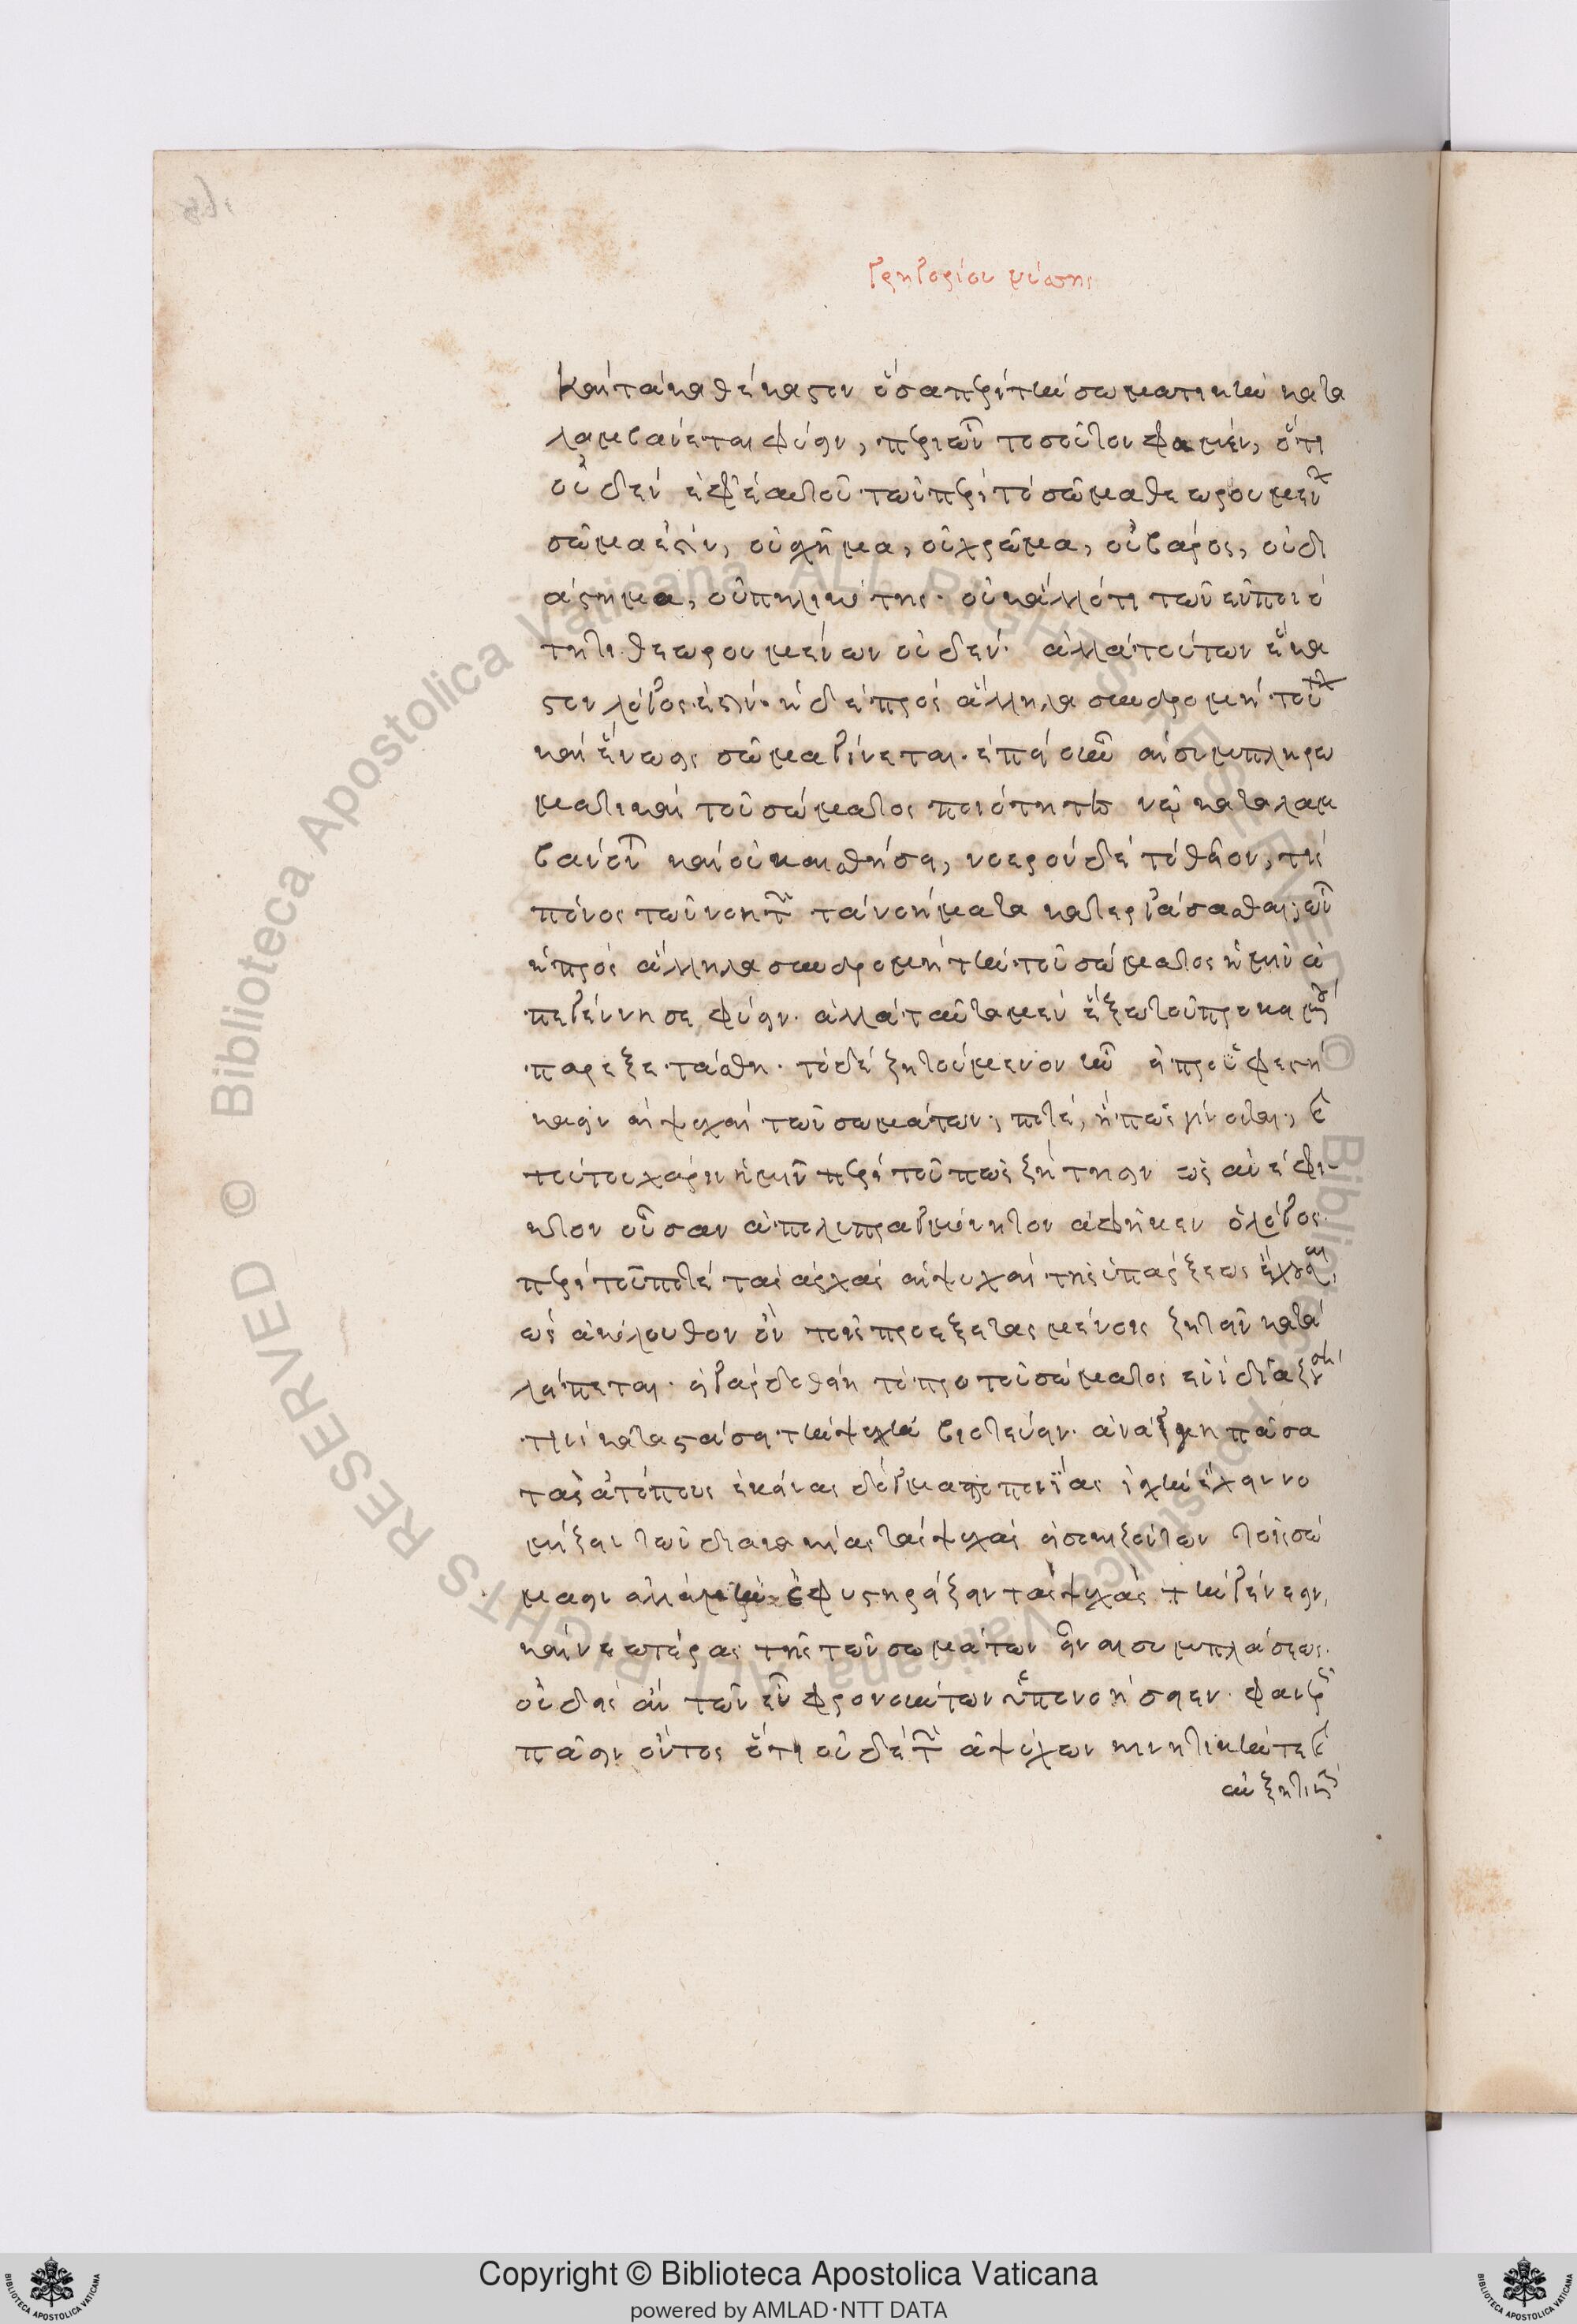 Γρηγορίου νύσης
καὶ τὰ καθέκαστον ὅσα περὶ τὴν σωματικὴν κατα
λαμβάνεται φύσιν, περὶ ὧν τοσοῦτον φαμὲν, ὅτι
οὐδὲν ἐφ ἑαυτοῦ τῶν περὶ τὸ σῶμα θεωρουμένων
σῶμα ἐστὶν, οὐ σχῆμα, οὐ χρῶμα, οὐ βάρος, οὐ δι
άστημα, οὐ πηλικότης· οὐκ ἄλλό τι τῶν ἐν ποιό
τητι θεωρουμένων οὐδέν· ἀλλὰ τούτων ἕκα
στον λόγος ἐστίν· ἡ δὲ πρὸς ἄλληλα συνδρομὴ τούτων
καὶ ἕνωσις σῶμα γίνεται· ἐπεὶ οὖν αἱ συμπληρω
ματικαὶ τοῦ σώματος ποιότητες νῷ καταλαμ
βάνονται καὶ οὐκ αἰσθήσει, νοερὸν δὲ τὸ θεῖον, τίς
πόνος τῷ νοητῷ τὰ νοήματα κατεργάσασθαι, ὧν
ἡ πρὸς ἄλληλα συνδρομὴ τὴν τοῦ σώματος ἡμῖν ἀ
πεγέννησε φύσιν· ἀλλὰ ταῦτα μὲν ἔξω τοῦ προκειμένου
παρεξετάσθη· τὸ δὲ ζητούμενον ἦν εἰ προϋφεστή
κασιν αἱ ψυχαὶ τῶν σωμάτων, πότε, ἢ πῶς γίνονται, καὶ
τούτου χάριν ἡμῖν περὶ τοῦ πῶς ζήτησιν ὡς ἀνέφι-
κτον οὖσαν ἀπολυπραγμόνητον ἀφῆκεν ὁ λόγος·
περὶ τοῦ πότε τὰς ἀρχὰς αἱ ψυχαὶ τῆς ὑπάρξεως ἔχουσιν,
ὡς ἀκόλουθον ὂν τοῖς προεξετασμένοις ζητεῖν κατα
λείπεται· εἰ γὰρ δοθείη τὸ πρὸ τοῦ σώματος ἐν ἰδιαζούσῃ
τινὶ καταστάσει τὴν ψυχὴν βιοτεύειν· ἀνάγκη πᾶσα
τὰς ἀτόπους ἐκείνας δογματοποιΐας ἰσχὺν ἔχειν νο
μίζειν τῶν διὰ κακίας τὰς ψυχὰς εἰσοικιζόντων τοῖς σώ
μασιν ἀλλὰ μὴν ἐφυστηρίζειν τὰς ψυχὰς τὴν γένεσιν,
καὶ νεωτέρας τῆς τῶν σωμάτων εἶναι συμπλάσεως.
οὐδεὶς ἂν τῶν εὖ φρονούντων ὑπονοήσειεν· φανεροῦ
πᾶσιν ὄντος ὅτι οὐδὲν τῶν ἀψύχων κινητικήν τε καὶ
αὐξητικὴν